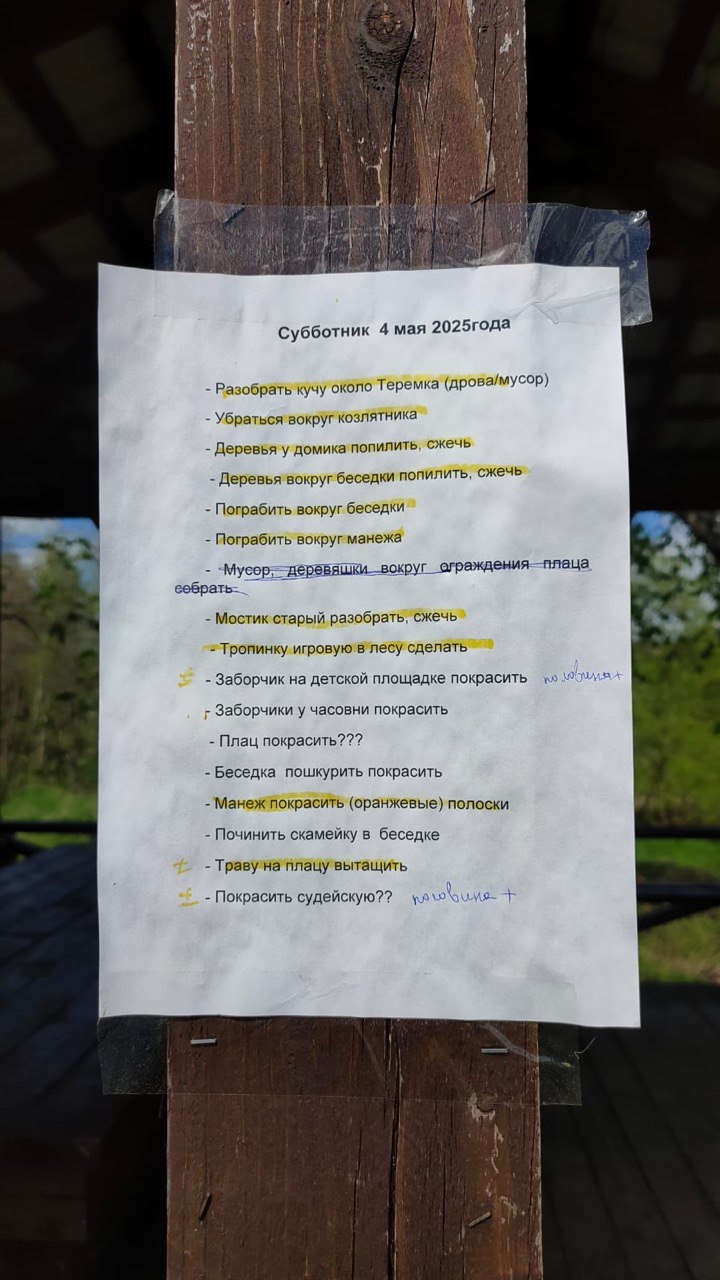 Субботник 4 мая 2025года
- Разобрать кучу около Теремка (дрова/мусор)
- Убраться вокруг козлятника
- Деревья у домика попилить, сжечь
- Деревья вокруг беседки попилить, сжечь
- Пограбить вокруг беседки
- Пограбить вокруг манежа
- Мусор, деревяшки вокруг ограждения плаца
собрать
- Мостик старый разобрать, сжечь
- Тропинку игровую в лесу сделать
± - Заборчик на детской площадке покрасить половина+
- Заборчики у часовни покрасить
- Плац покрасить???
- Беседка пошкурить покрасить
- Манеж покрасить (оранжевые) полоски
- Починить скамейку в беседке
± - Траву на плацу вытащить
± - Покрасить судейскую?? половина +